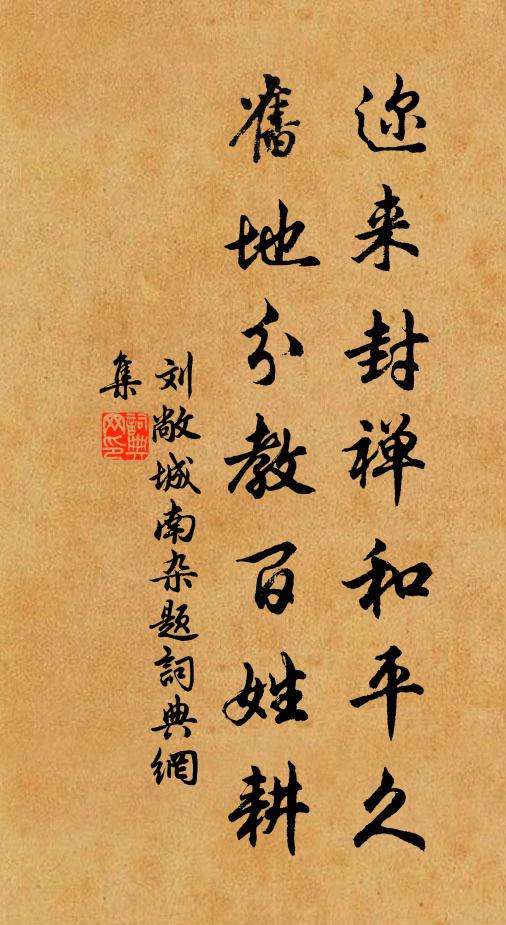 迩来封禅和平久
旧地分教百姓耕
刘敞城南杂题词典網
集
詞典
网印